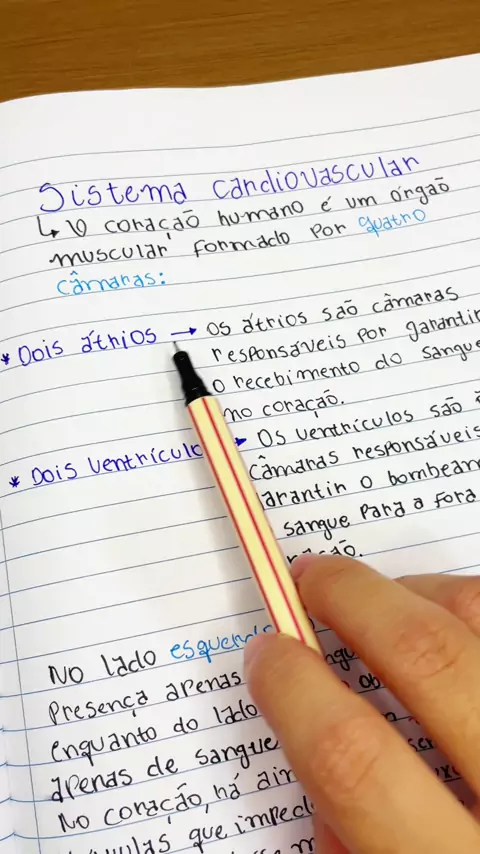 Sistema cardiovascular
↳ O coração humano é um órgão
muscular formado por quatro
câmaras:
* Dois átrios → Os átrios são câmaras
responsáveis por garantir
o recebimento do sangue
no coração.
* Dois ventrículo → Os ventrículos são
câmaras responsáveis
arantir o bombeam
sangue para a fora
ração.
No lado esquerdo
presença apenas
enquanto do lado
apenas de sangue
No coração, há ain
que imped